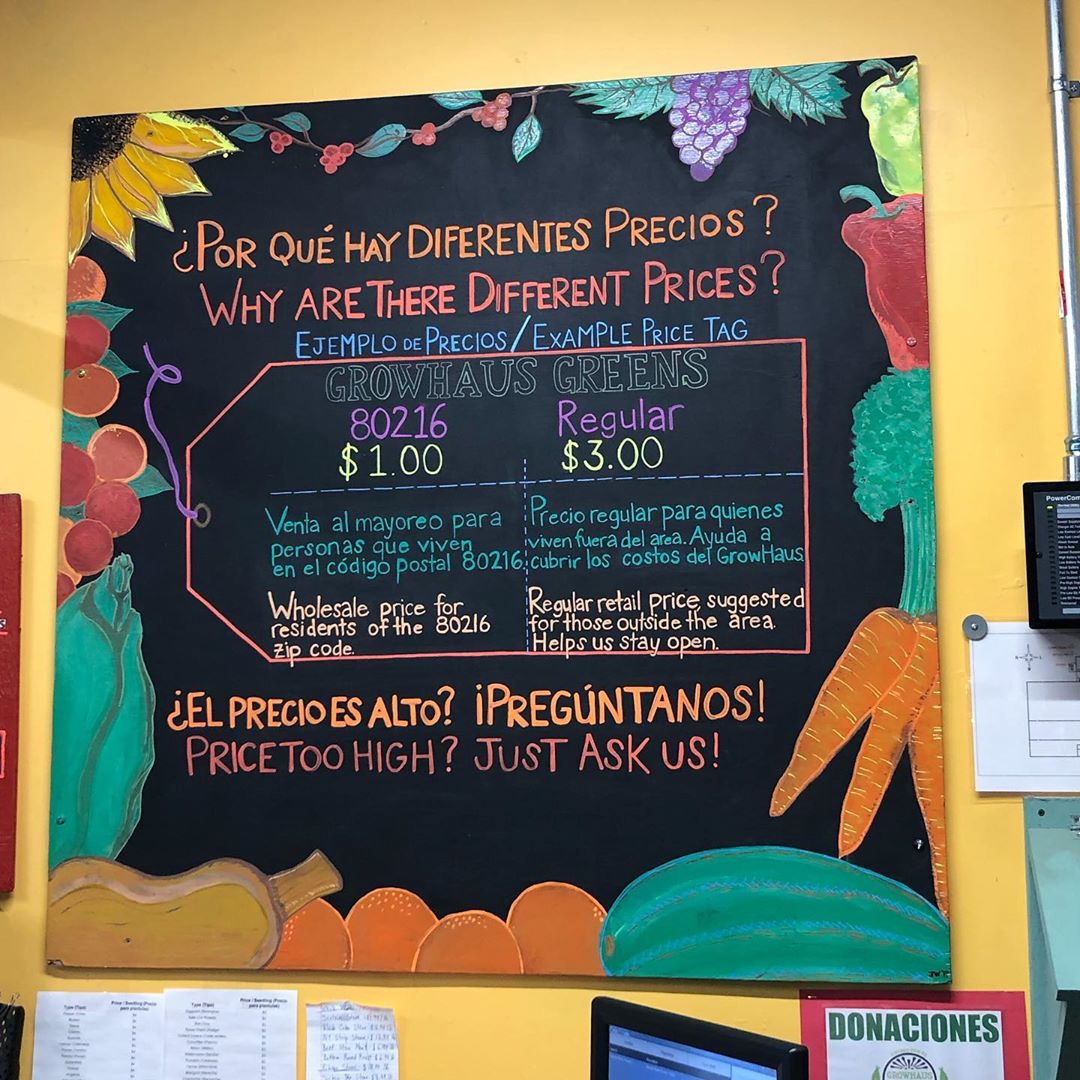 ¿POR QUÉ HAY DIFERENTES PRECIOS?
WHY ARE THERE DIFFERENT PRICES?
EJEMPLO DE PRECIOS/EXAMPLE PRICE TAG
GROWHAUS GREENS
80216 Regular
$1.00 $3.00
Venta al mayoreo para
personas que viven
en el código postal 80216
Precio regular para quienes
viven fuera del area. Ayuda a
cubrir los costos del GrowHaus
Wholesale price for
residents of the 80216
zip code.
Regular retail price suggested
for those outside the area.
Helps us stay open.
¿EL PRECIO ES ALTO? ¡PREGÚNTANOS!
PRICE TOO HIGH? JUST ASK US!
PowerCom
Type (Tipo) Price / Seedling (Precio
para plántulas)
Type (Tipo) Price / Seedling (Precio
para plántulas)
DONACIONES
GROWHAUS